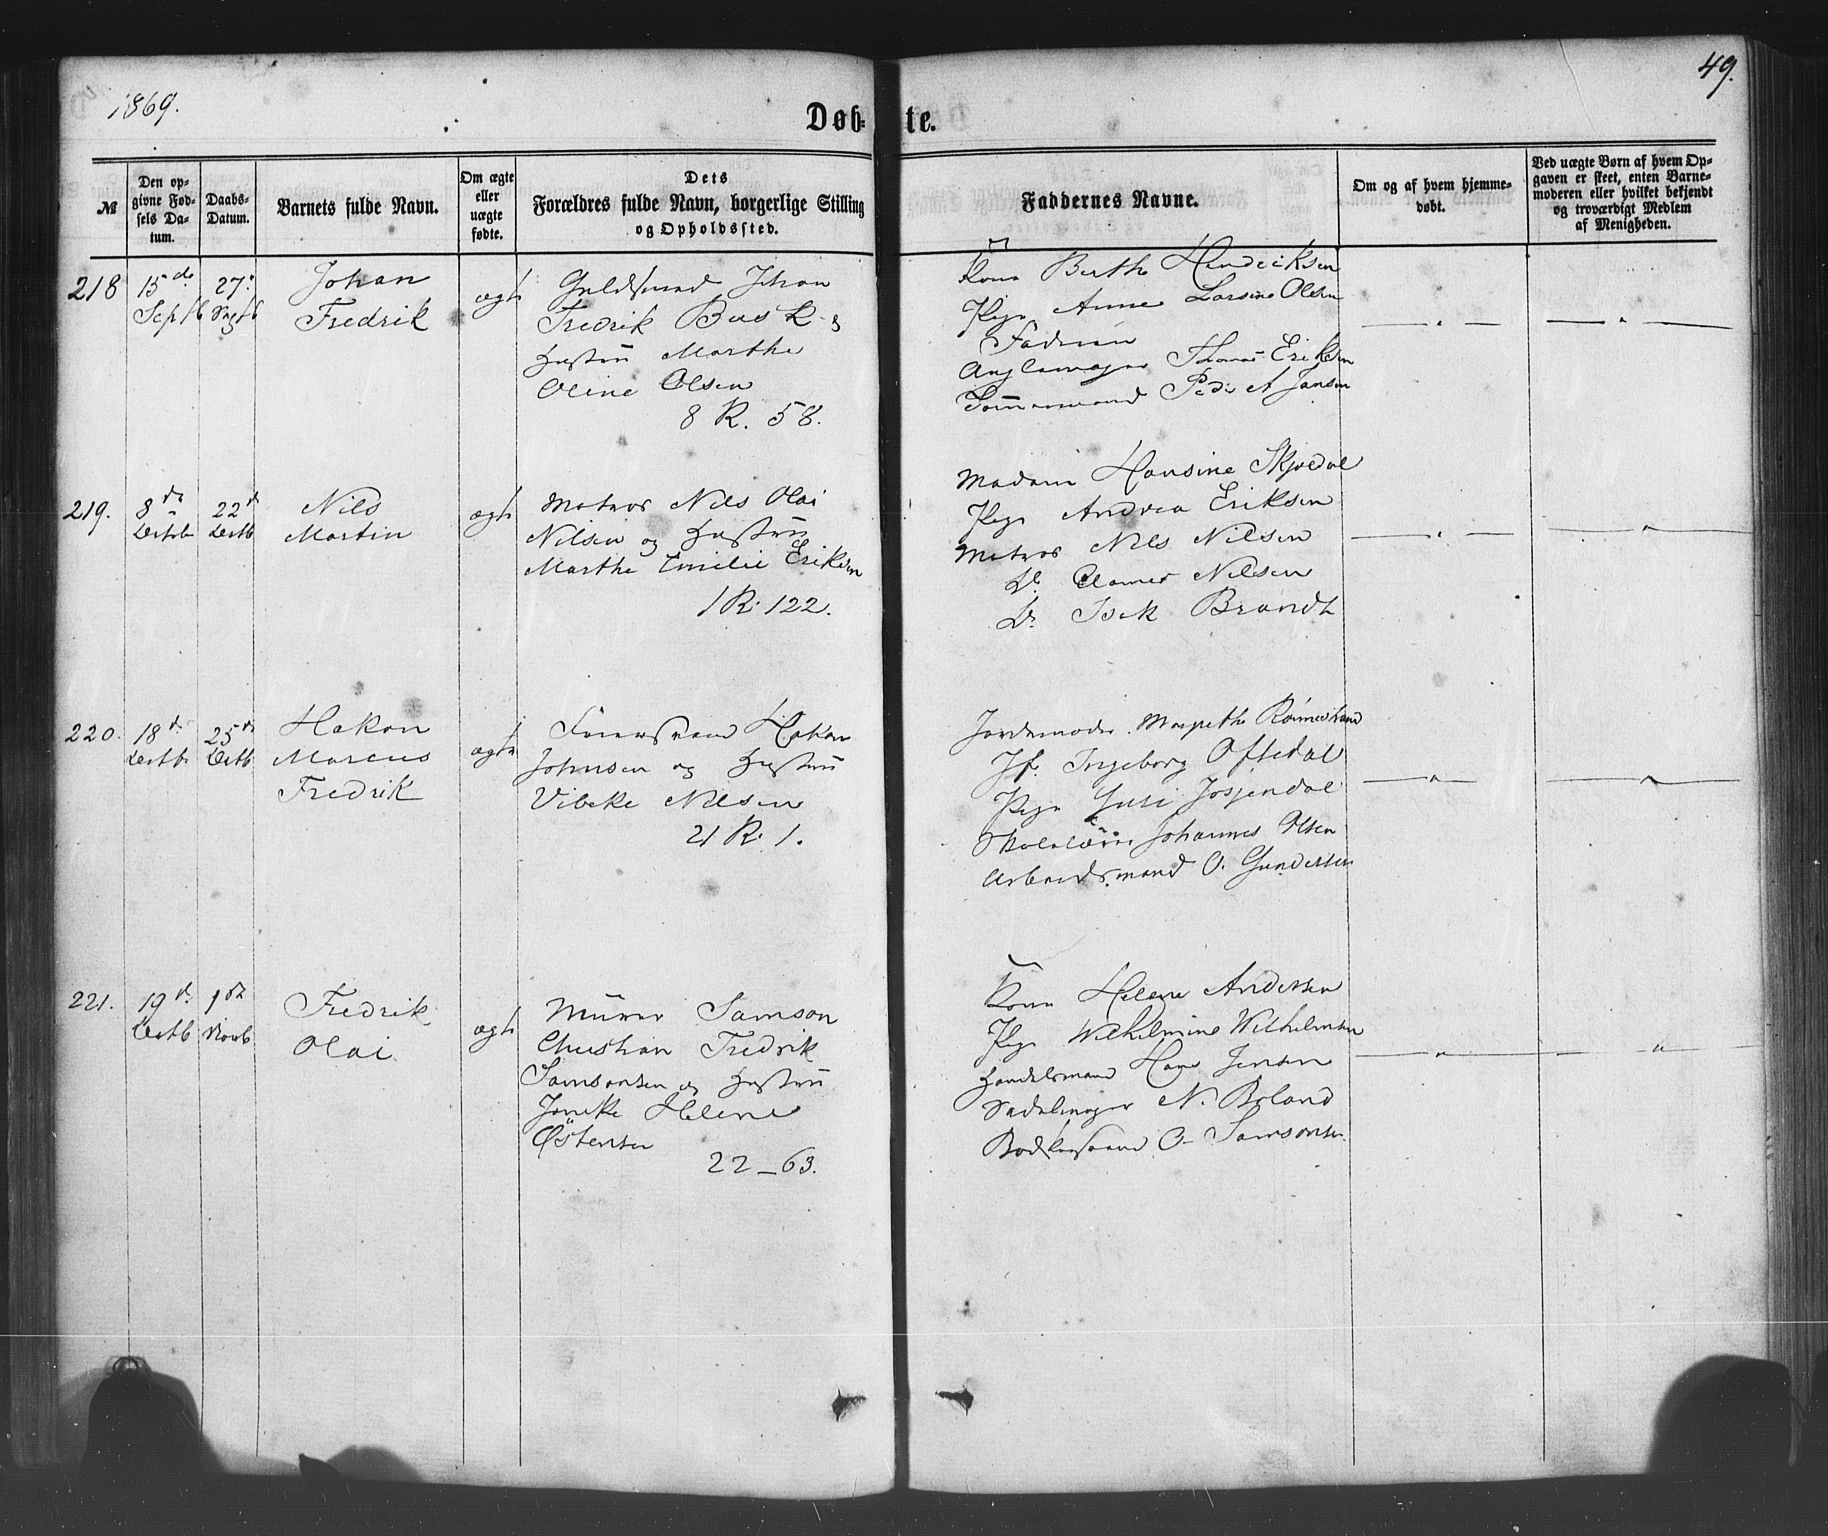 1869.
49.
Døb-te.
№
Den opgivne Fødsels Datum.
Daabs-Datum.
Barnets fulde Navn.
Om ægte eller uægte fødte.
Dets Forældres fulde Navn, borgerlige Stilling og Opholdssted.
Faddernes Navne.
Om og af hvem hjemmedøbt.
Ved uægte Børn af hvem Opgaven er skeet, enten Barnemoderen eller hvilket bekjendt og troværdigt Medlem af Menigheden.
218
15de Septb
27
Johan
Fredrik
ægte
Guldsmed Johan
Fredrik Busk &
Hustru Marthe
Oline Olsen
8 R. 58.
Kone Berthe Hendriksen
Pige Anne Larsine Olsen
Faderen
Thomas Eriksen
Tømmermand Peder A Jansen
219.
8de Octbr
22d Octb
Nils
Martin
ægte
Matros Nils Olai
Nilsen og Hustru
Marthe Emilie Eriksen
1 R. 122.
Madam Hansine Skjvedal
Pige Andrea Eriksen
Matros Nils Nilsen
Do Clames Nilsen
Do Isek Brandt
220.
18d Octb
25d Octb
Hakon
Marcus
Fredrik
ægte
Hakon
Johnsen og Hustru
Vibeke Nilsen
21 R. 1.
Jordemoder Margrethe
Jf. Ingeborg Oftedal
Pige Guri Josjendal
Skolelærer Johannes Olsen
Arbeidsmand O. Gundersen
221.
19d Octb
1ste Novb
Fredrik
Olai
ægte
Murer Samson
Christian Fredrik
Samsonsen og Hustru
Janike Helene
Østensen
22 - 63.
Kone Helene Andersen
Pige Wilhelmine Wilhelmsen
Handelsmand Hans Jensen
Sadelmager N. Byland
O. Samsonsen